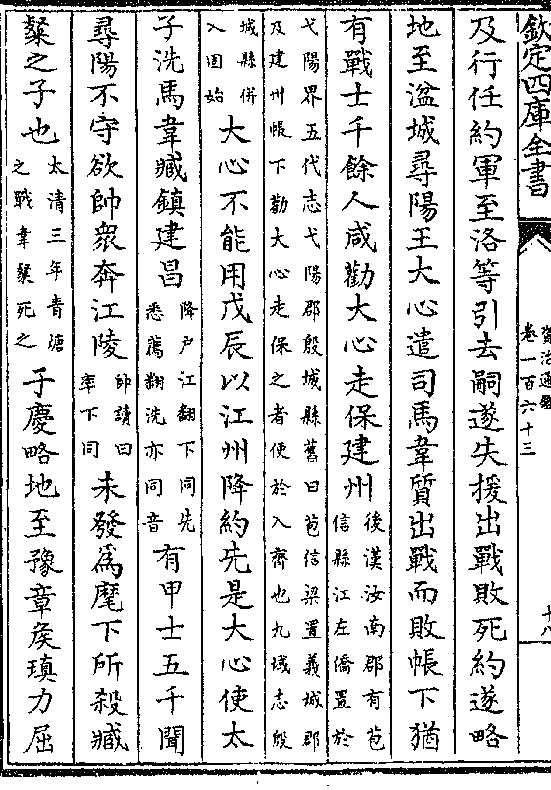 欽定四庫全書
資治通鑑
卷一百六十三
十八
及行任約軍至洛等引去嗣遂失援出戰敗死約遂略
地至湓城尋陽王大心遣司馬韋質出戰而敗帳下猶
有戰士千餘人咸勸大心走保建州
後漢汝南郡有苞
信縣江左僑置於
弋陽界五代志弋陽郡殷城縣舊曰苞信梁置義城郡
及建州帳下勸大心走保之者便於入齊也九域志殷
城縣併
入固始
大心不能用戊辰以江州降約先是大心使太
子洗馬韋臧鎮建昌
降户江翻下同先
悉薦翻洗亦同音
有甲士五千聞
尋陽不守欲帥衆奔江陵
帥讀曰
率下同
未發為麾下所殺臧
粲之子也
太清三年青塘
之戰韋粲死之
于慶略地至豫章矦瑱力屈